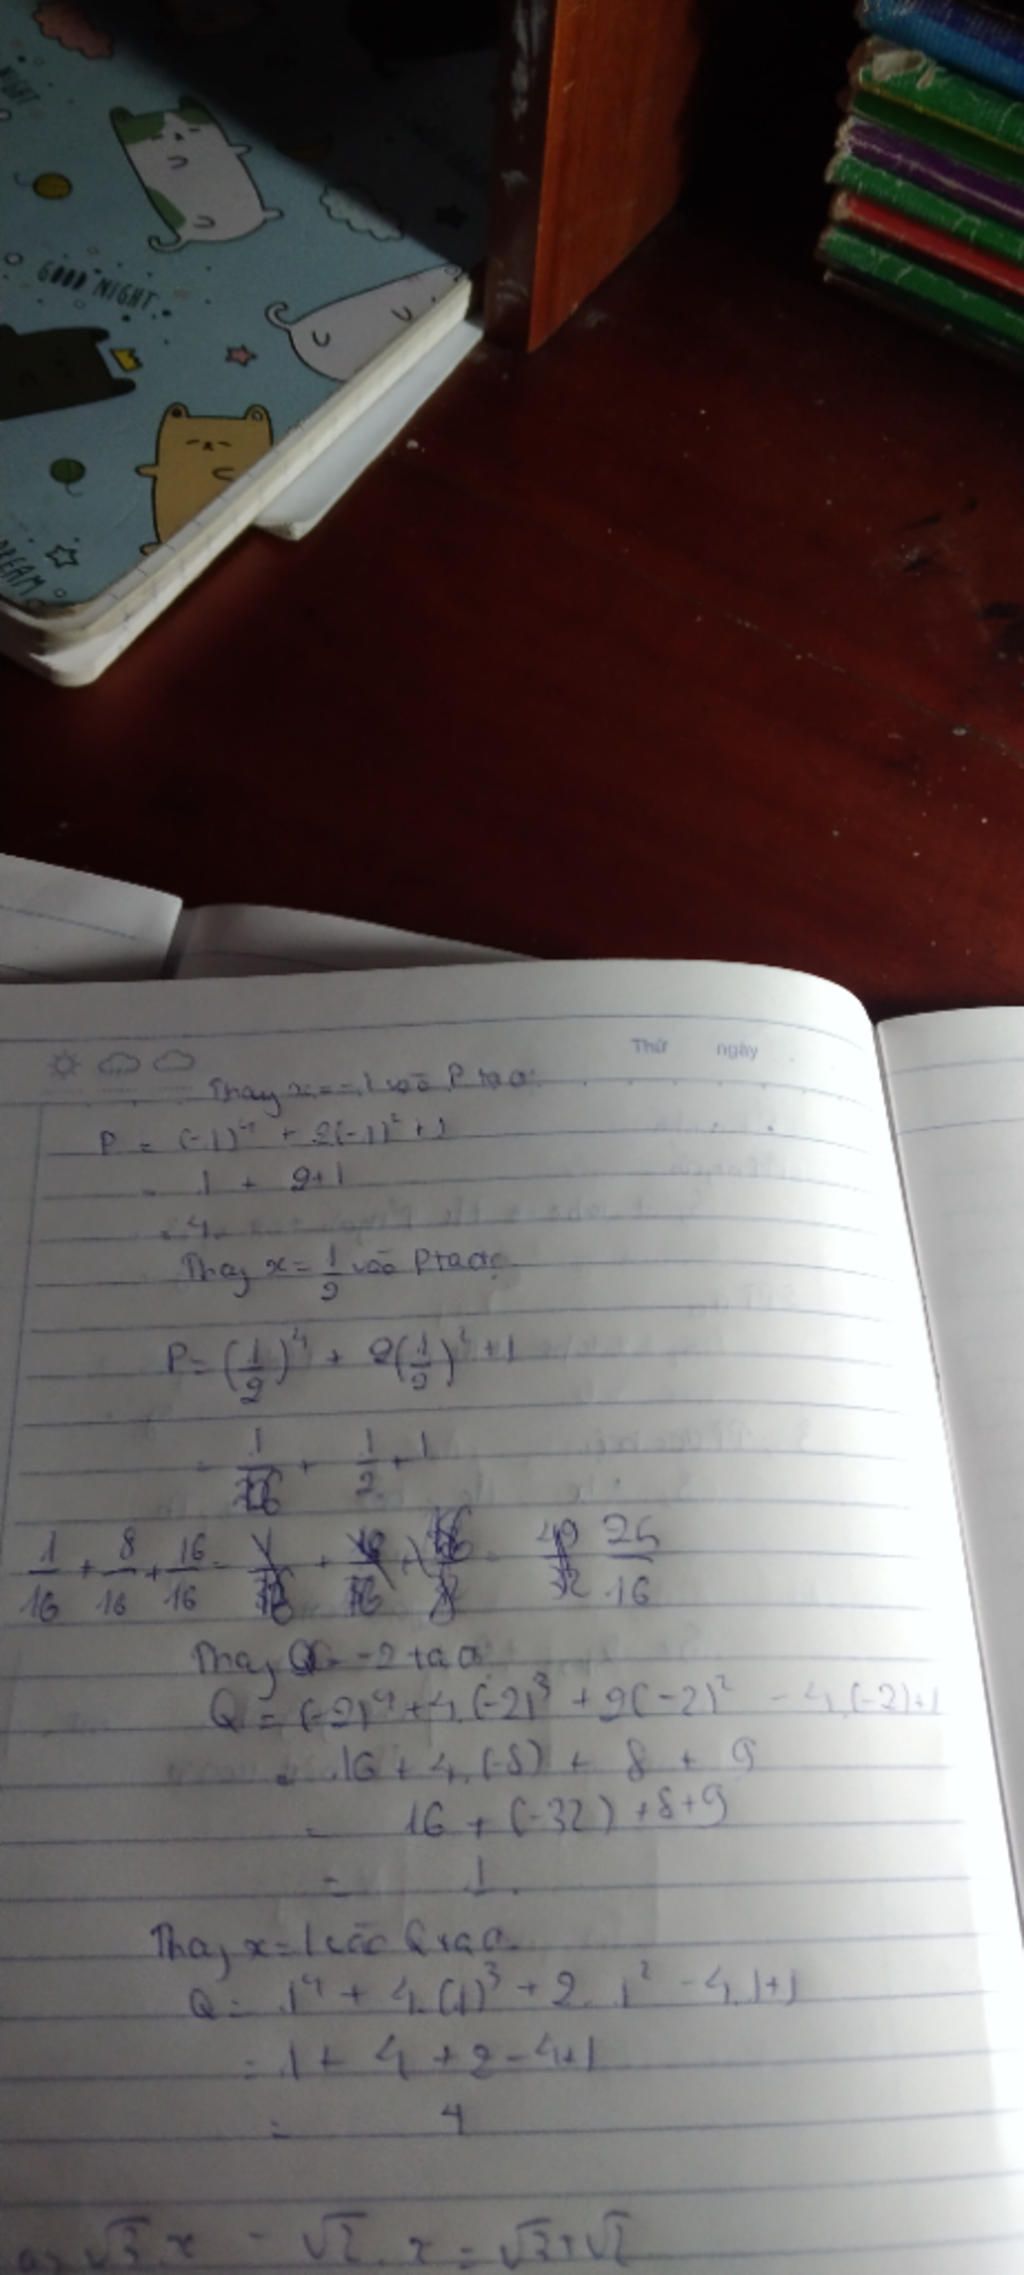 NIGHT
GOOD NIGHT
DREAM
Thứ ngày
Thay x = -1 vào P ta
P = (-1)⁴ + 2(-1)² + 1
= 1 + 2+1
= 4
Thay x = 1/2 vào P ta
P = (1/2)⁴ + 2(1/2)² + 1
= 1/16 + 1/2 + 1
1/16 + 8/16 + 16/16 = 25/16
Thay = -2 ta
Q = (-2)⁴ + 4.(-2)³ + 2(-2)² - 4.(-2)+1
= 16 + 4.(-8) + 8 + 9
= 16 + (-32) + 8+9
= 1
Thay x = 1 vào Q ta
Q = 1⁴ + 4.(1)³ + 2.1² - 4.1+1
= 1 + 4 + 2 - 4+1
= 4
√3.x - √2.x = √3+√2